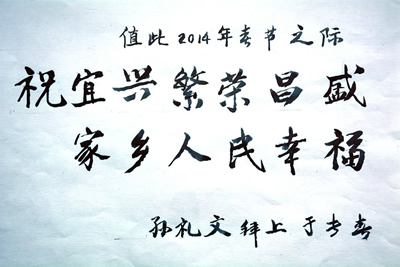 值此2014年春节之际
祝宜兴繁荣昌盛
家乡人民幸福
孙礼文拜上于长春